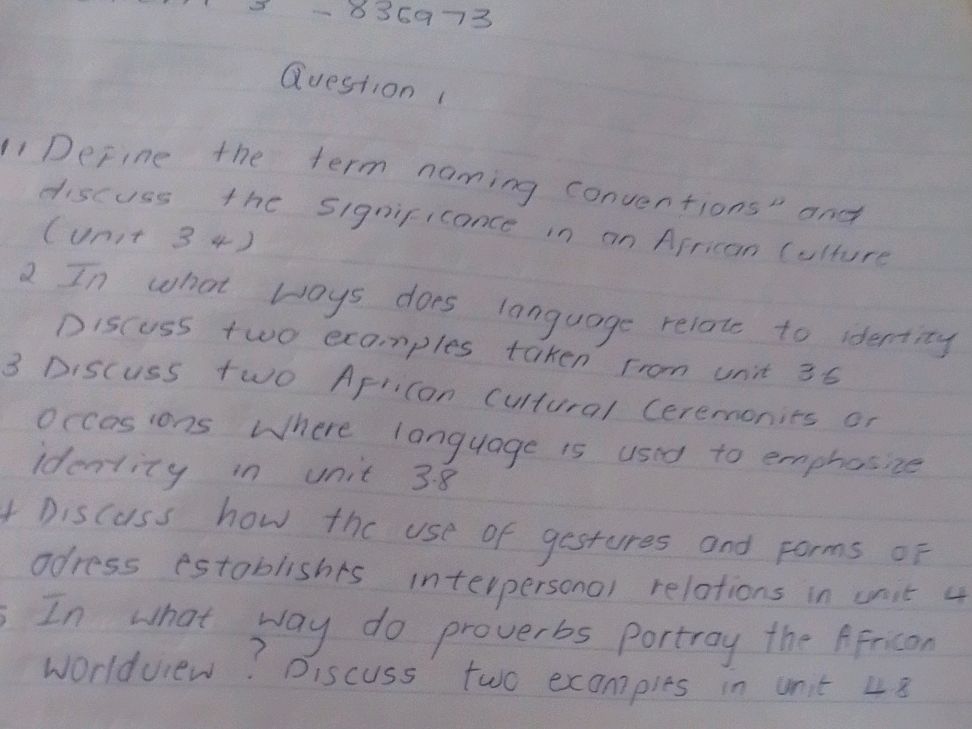 3 - 836973
Question 1
11 Define the term naming conventions" and
discuss the significance in an African Culture
(unit 3 4)
2 In what ways does language relate to identity
Discuss two examples taken from unit 36
3 Discuss two African Cultural Ceremonies or
Occasions Where language is used to emphasize
identity in unit 3.8
Discuss how the use of gestures and forms of
adress establishes interpersonal relations in unit 4
5 In what way do proverbs Portray the African
Worldview? Discuss two examples in unit 48